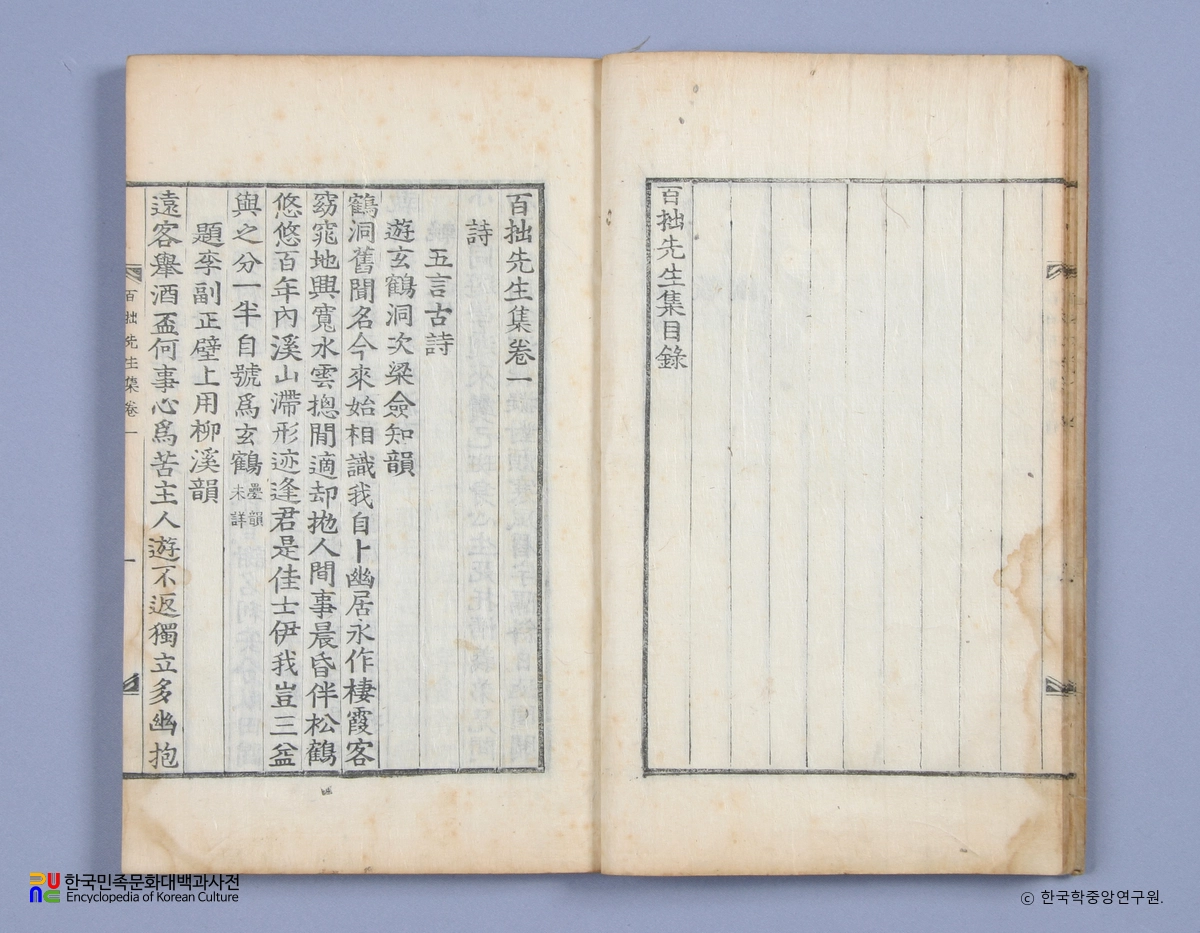 百拙先生集目錄
百拙先生集卷一
詩
五言古詩
遊玄鶴洞次梁僉知韻
鶴洞舊聞名今來始相識我自卜幽居永作棲霞客
窈窕地興寬水雲摠閒適却拋人間事晨昏伴松鶴
悠悠百年內溪山滯形迹逢君是佳士伊我豈三益
與之分一半自號爲玄鶴
疊韻
未詳
題李副正壁上用柳溪韻
遠客舉酒盃何事心爲苦主人遊不返獨立多幽抱
百拙先生集卷一
一
한국민족문화대백과사전
Encyclopedia of Korean Culture
ⓒ 한국학중앙연구원.